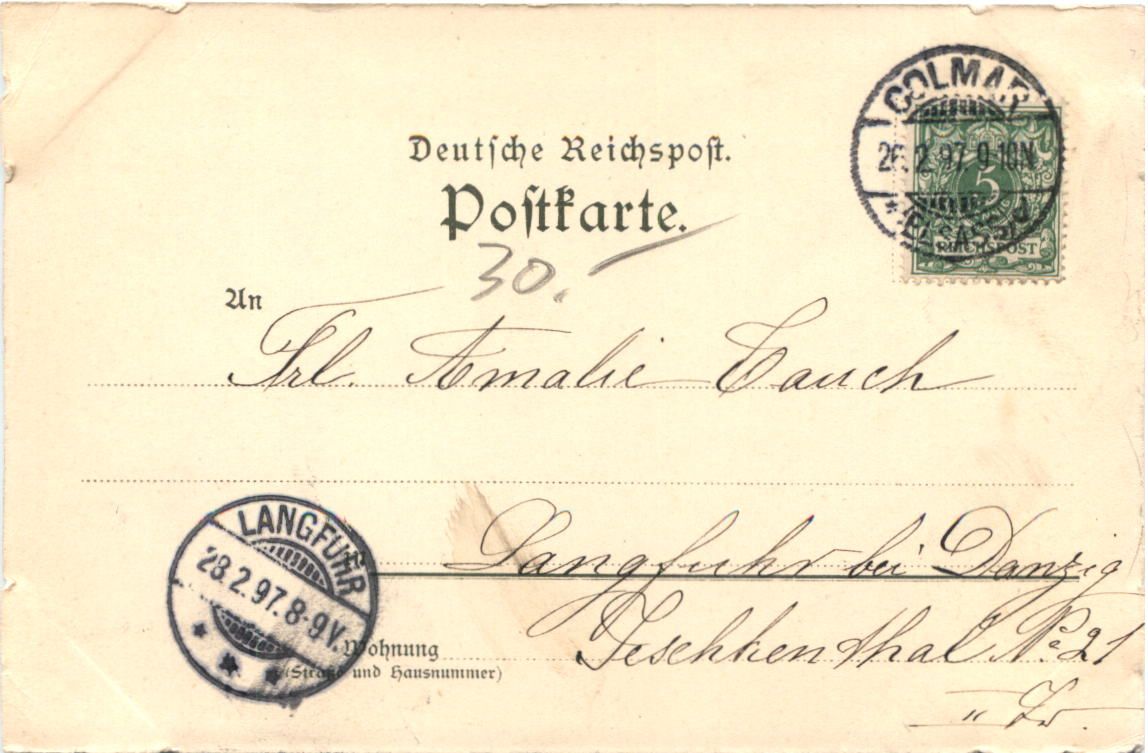 COLMAR
26.2.97. 9-10N.
(ELSASS)
5
REICHSPOST
Deutsche Reichspost.
Postkarte.
30.
An
Frl. Amalie Tauch
Langfuhr bei Danzig
LANGFUHR
28.2.97. 8-9V.
Wohnung
(Straße und Hausnummer)
Jeschkenthal No 21